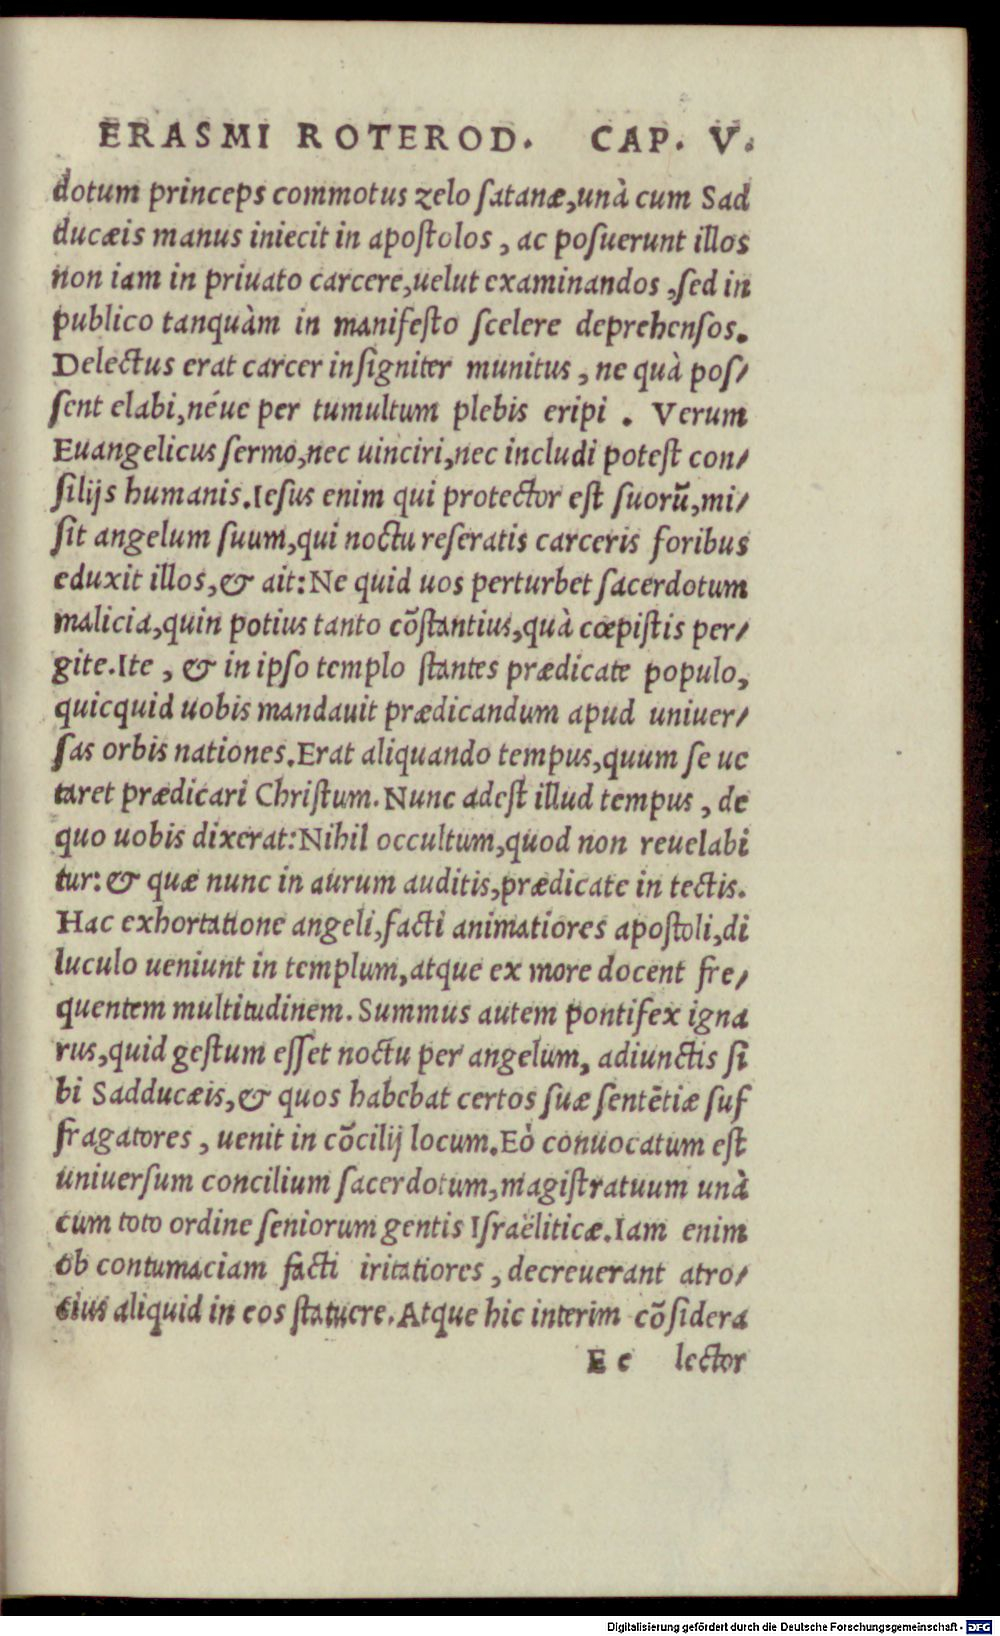 ERASMI ROTEROD. CAP. V.
dotum princeps commotus zelo ſatanæ,unà cum Sad
ducæis manus iniecit in apoſtolos , ac poſuerunt illos
non iam in priuato carcere,uelut examinandos ,ſed in
publico tanquàm in manifeſto ſcelere deprehenſos.
Delectus erat carcer inſigniter munitus , ne quà poſ/
ſent elabi,néue per tumultum plebis eripi . Verum
Euangelicus ſermo,nec uinciri,nec includi poteſt con/
ſilijs humanis.Ieſus enim qui protector eſt ſuorũ,mi/
ſit angelum ſuum,qui noctu reſeratis carceris foribus
eduxit illos,& ait:Ne quid uos perturbet ſacerdotum
malicia,quin potius tanto cõſtantius,quà cœpiſtis per/
gite.Ite , & in ipſo templo ſtantes prædicate populo,
quicquid uobis mandauit prædicandum apud uniuer/
ſas orbis nationes.Erat aliquando tempus,quum ſe ue
taret prædicari Chriſtum.Nunc adeſt illud tempus , de
quo uobis dixerat:Nihil occultum,quod non reuelabi
tur:& quæ nunc in aurum auditis,prædicate in tectis.
Hac exhortatione angeli,facti animatiores apoſtoli,di
luculo ueniunt in templum,atque ex more docent fre/
quentem multitudinem.Summus autem pontifex igna
rus,quid geſtum eſſet noctu per angelum, adiunctis ſi
bi Sadducæis,& quos habebat certos ſuæ ſentẽtiæ ſuf
fragatores , uenit in cõcilij locum.Eò conuocatum eſt
uniuerſum concilium ſacerdotum,magiſtratuum unà
cum toto ordine ſeniorum gentis Iſraëliticæ.Iam enim
ob contumaciam facti iritatiores , decreuerant atro/
cius aliquid in eos ſtatuere.Atque hic interim cõſidera
E e lector
Digitalisierung gefördert durch die Deutsche Forschungsgemeinschaft - DFG